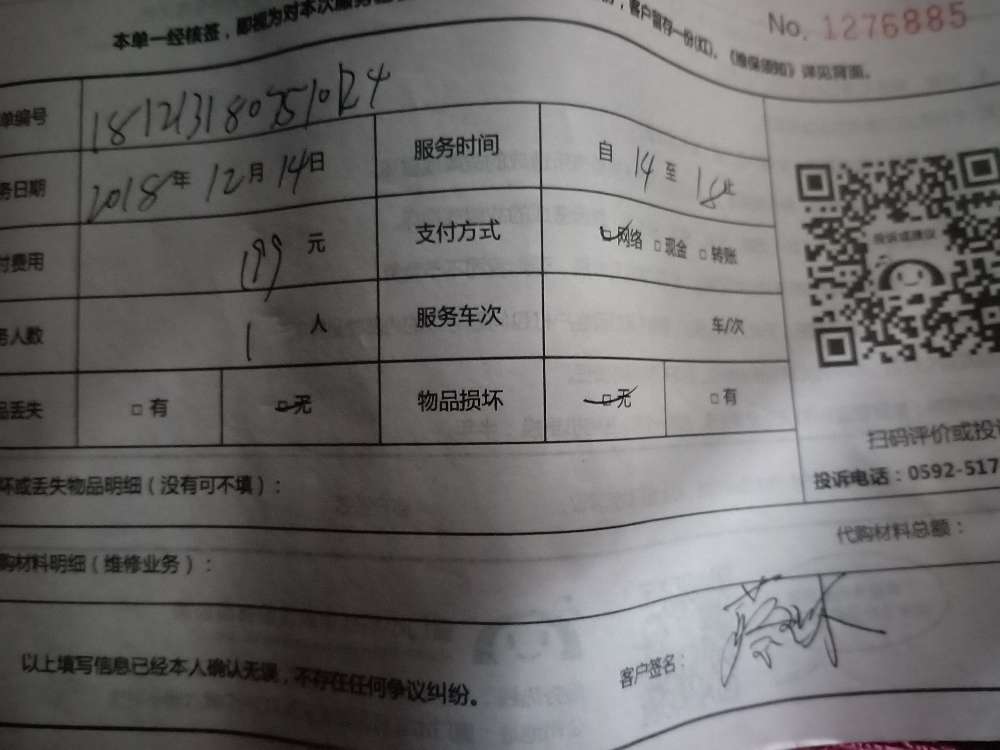 No. 1276885
本单一经核签，即视为对本次服务
，客户留存一份(红)。《维保须知》详见背面。
单编号 181213180751024
务日期 2018年 12月 14日 服务时间 自 14 至 18止
付费用 199 元 支付方式 □网络 □现金 □转账
务人数 1 人 服务车次 车/次
品丢失 □有 □无 物品损坏 □无 □有
投诉或建议
扫码评价或投诉
投诉电话：0592-517
坏或丢失物品明细（没有可不填）：
代购材料总额：
购材料明细（维修业务）：
以上填写信息已经本人确认无误，不存在任何争议纠纷。
客户签名：